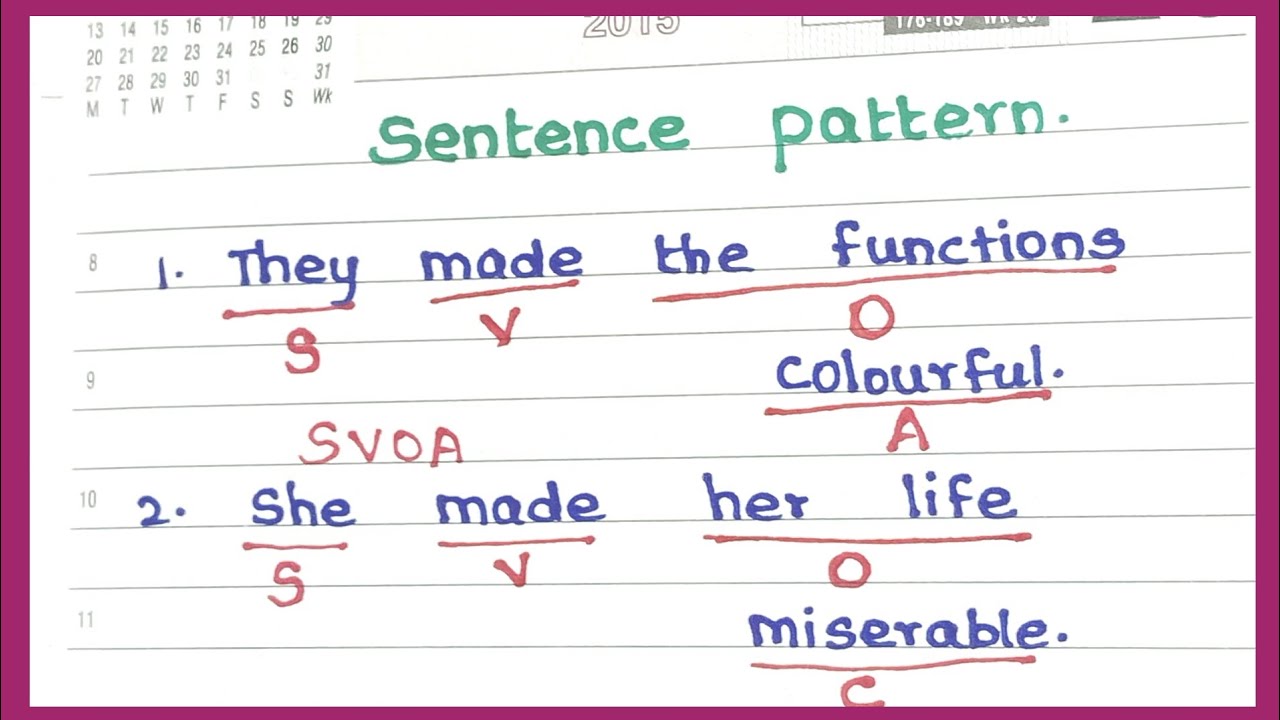 13 14 15 16 17 18 19 29
20 21 22 23 24 25 26 30
27 28 29 30 31 31
M T W T F S S Wk
2015
Sentence pattern.
8
1. They made the functions
S V O
9
colourful.
A
SVOA
10
2. She made her life
S V O
11
miserable.
C